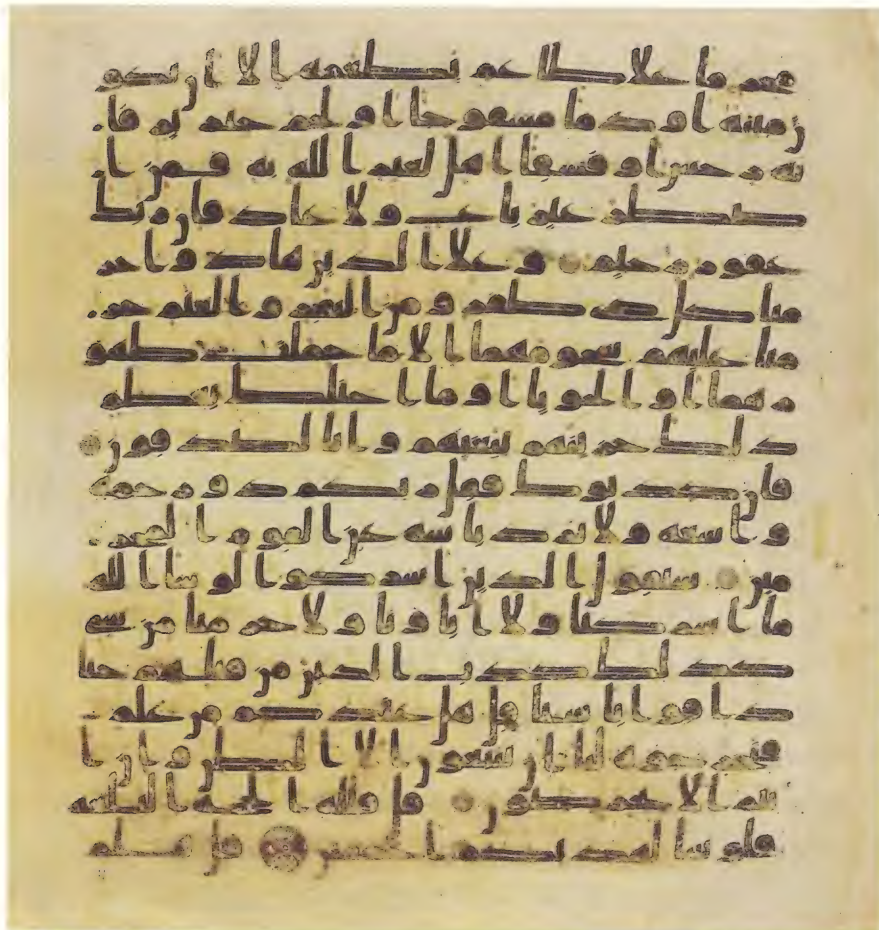 محرما علا طاعم يطعمه الا ان يكو
ن ميتة او دما مسفوحا او لحم خنزير فا
نه رجس او فسقا اهل لغير الله به فمن ا
ضطر غير باغ ولا عاد فان ربك
غفور رحيم وعلا الذين هادوا حر
منا كل ذي ظفر ومن البقر والغنم حر
منا عليهم شحومهما الا ما حملت ظهو
رهما او الحوايا او ما اختلط بعظم
ذلك جزينهم ببغيهم وانا لصدقون
فان كذبوك فقل ربكم ذو رحمة
واسعة ولا يرد باسه عن القوم المجر
مين سيقول الذين اشركوا لو شا الله
ما اشركنا ولا اباونا ولا حرمنا من شي
كذلك كذب الذين من قبلهم حتا
ذاقوا باسنا قل هل عندكم من علم
فتخرجوه لنا ان تتبعون الا الظن وان ا
نتم الا تخرصون قل فلله الحجة البلغة
فلو شا لهديكم اجمعين قل هلم